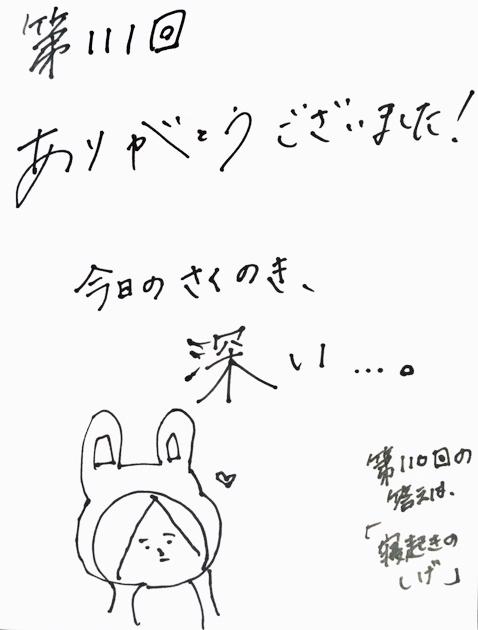 第111回
ありがとうございました!
今日のさくのき、
深い…。
第110回の
答えは、
「寝起きの
しげ」